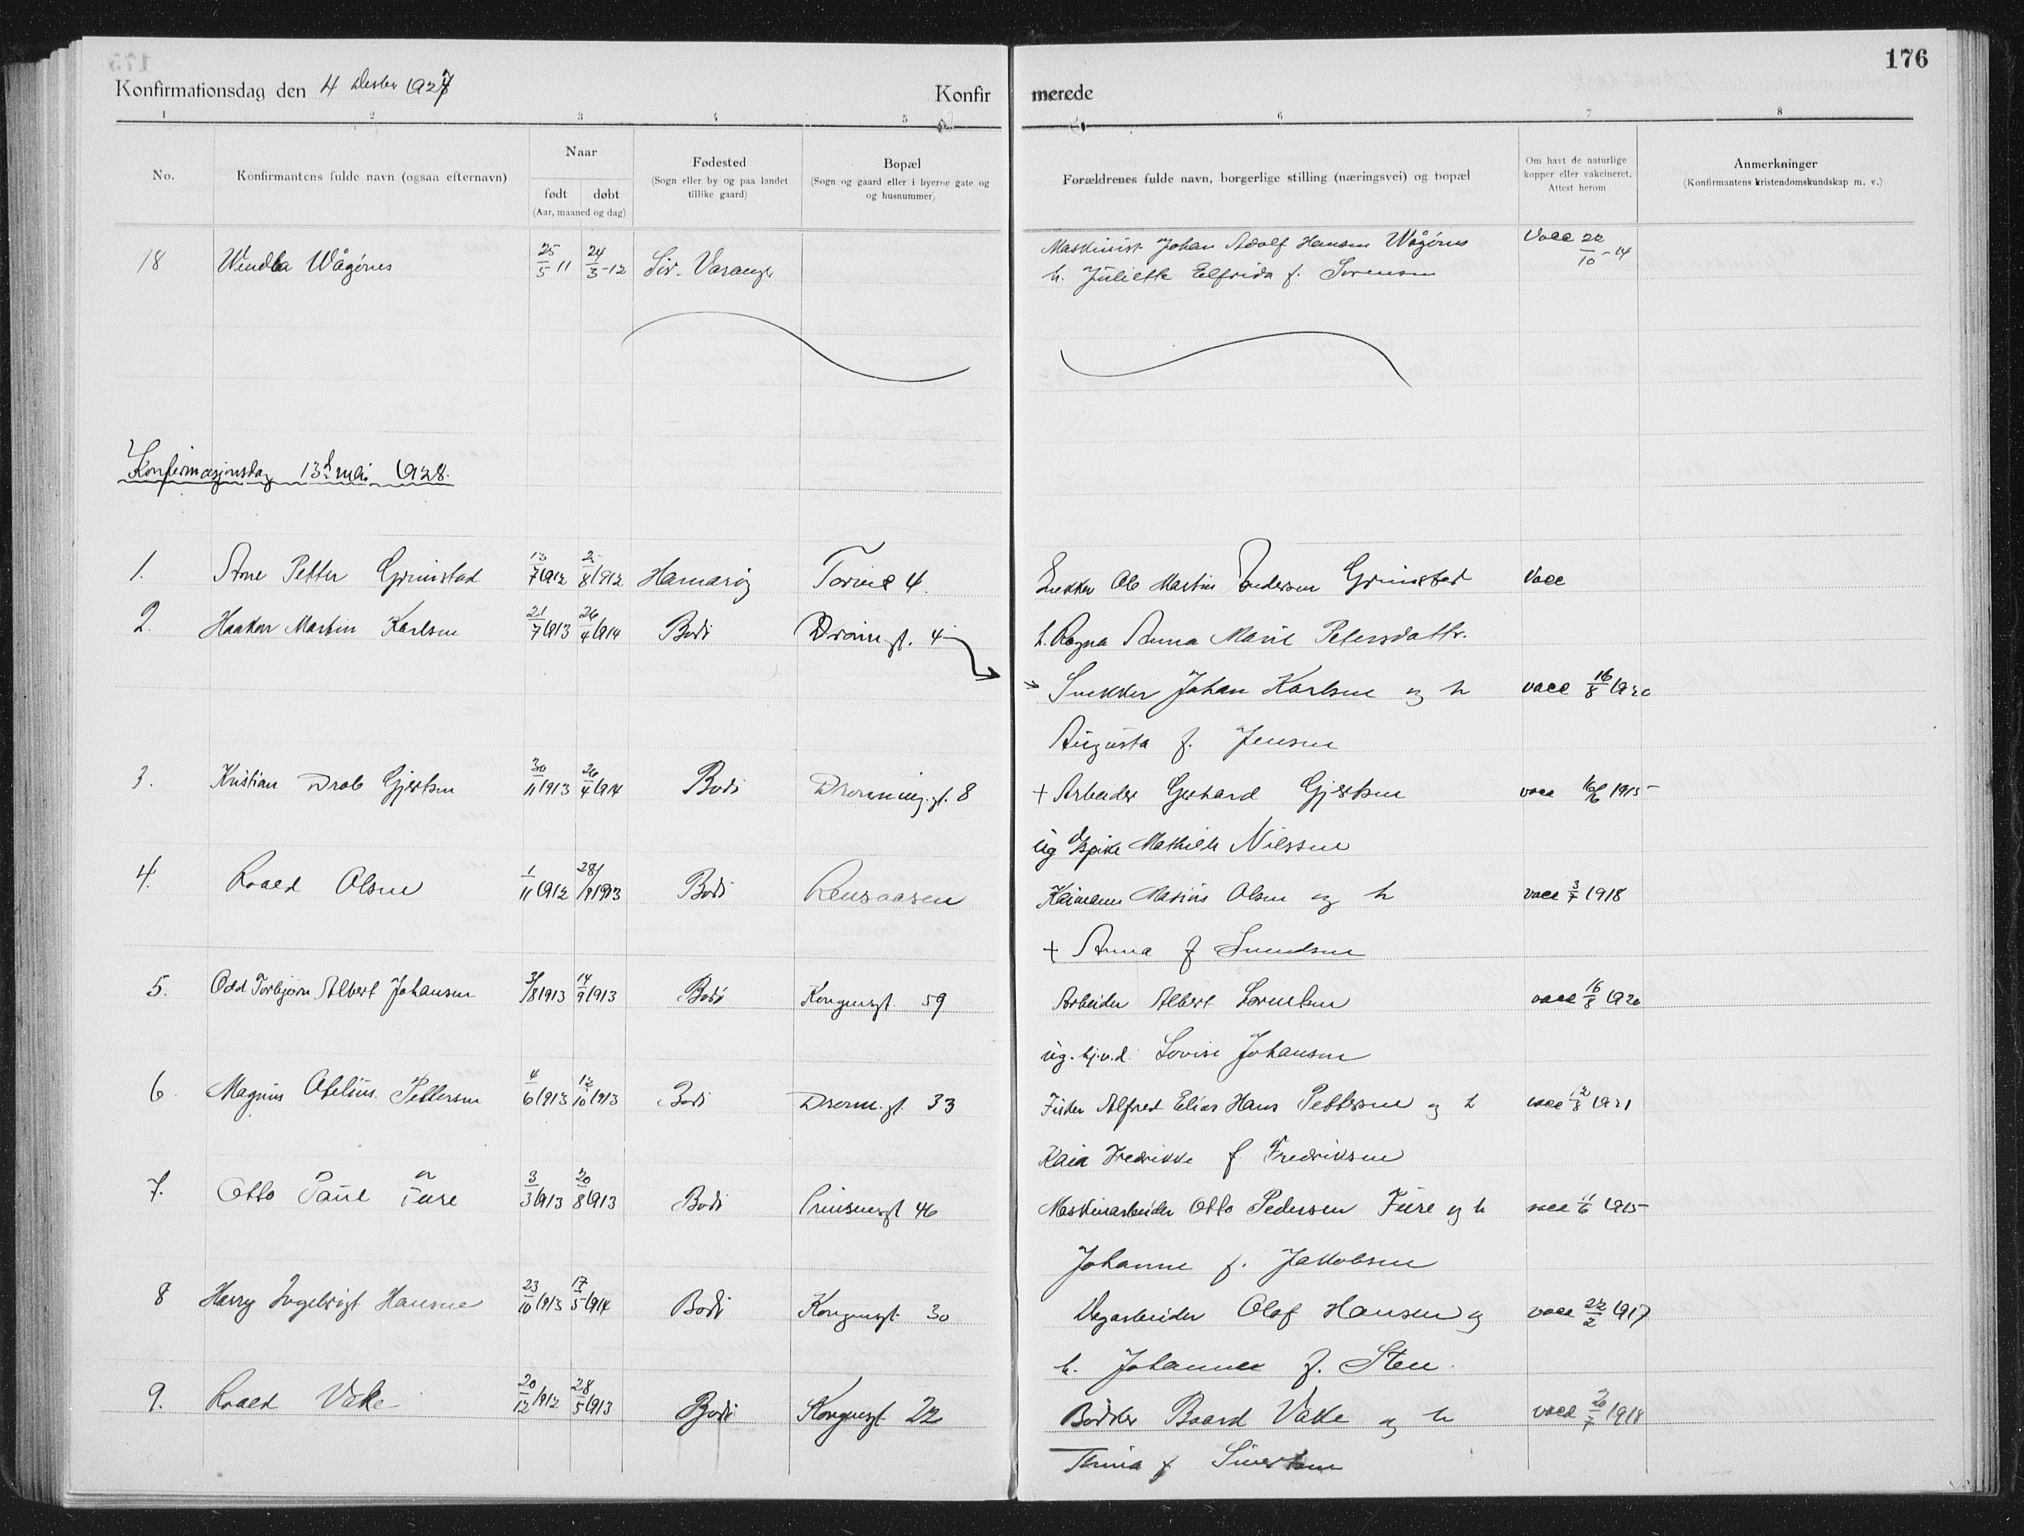 176
Konfirmationsdag den 4 Desbr 1927 Konfirmerede
1 2 3 4 5 6 7 8
No. Konfirmantens fulde navn (ogsaa efternavn) Naar født døbt (Aar, maaned og dag) Fødested (Sogn eller by og paa landet tillike gaard) Bopæl (Sogn og gaard eller i byerne gate og og husnummer) Forældrenes fulde navn, borgerlige stilling (næringsvei) og bopæl Om havt de naturlige kopper eller vakcineret. Attest herom Anmerkninger (Konfirmantens kristendomskundskap m. v.)
18 Wågønes 25/5-11 24/3-12 Varanger Maskinist Johan Adolf Hansen Wågønes Vacc 22/10-14
h. Juliette Elfrida f. Sørensen
Konfirmasjonsdag 13d mai 1928.
1. Arne Petter Grimstad 13/7 1912 2/8 1912 Hamarøy Torvet 4. Snekker Ole Martin Andersen Grimstad Vacc
2. Haakon Martin Karlsen 21/7 1913 26/4 1914 Bodø Dronn.gt. 4 h. Ragna Anna Marie Petersdattr.
Snekker Johan Karlsen og h vacc 16/8 1920
Augusta f. Jensen
3. Kristian Drab Gjertsen 30/11 1913 26/4 1914 Bodø Dronning.gt. 8 + Arbeider Gerhard Gjertsen vacc 1915
ug pike Mathilde Nilssen
4. Roald Olsen 1/11 1912 28/9 1913 Bodø Rensaasen Kaimann Marius Olsen og h vacc 3/7 1918
+ Anna f
5. Odd Torbjørn Albert Johansen 31/8 1913 14/9 1913 Bodø Kongensgt 59 Arbeider Albert Lorentsen vacc 16/8 1920
ug. hj.v.d. Lovise Johansen
6. Magnus Pettersen 4/6 1913 12/10 1913 Bodø Dronn.gt. 33 Fisker Alfred Elias Hans Pettersen og h vacc 1921
Kaia Fredrikke f Fredriksen
7. Otto Paul Fure 3/3 1913 20/8 1913 Bodø Prinsensgt 46 Maskinarbeider Otto Pedersen Fure og h vacc 11/6 1915
Johanne f. Jakobsen
8 Harry Ingebrigt Hansen 23/10 1913 17/5 1914 Bodø Kongensgt. 30 Dagarbeider Olaf Hansen og vacc 22/2 1917
h. Johanne f. Steen.
9. Roald Vake 20/12 1912 28/5 1913 Bodø Kongensgt 22 Bødker Baard Vake og h vacc 1918
f Sivertsen